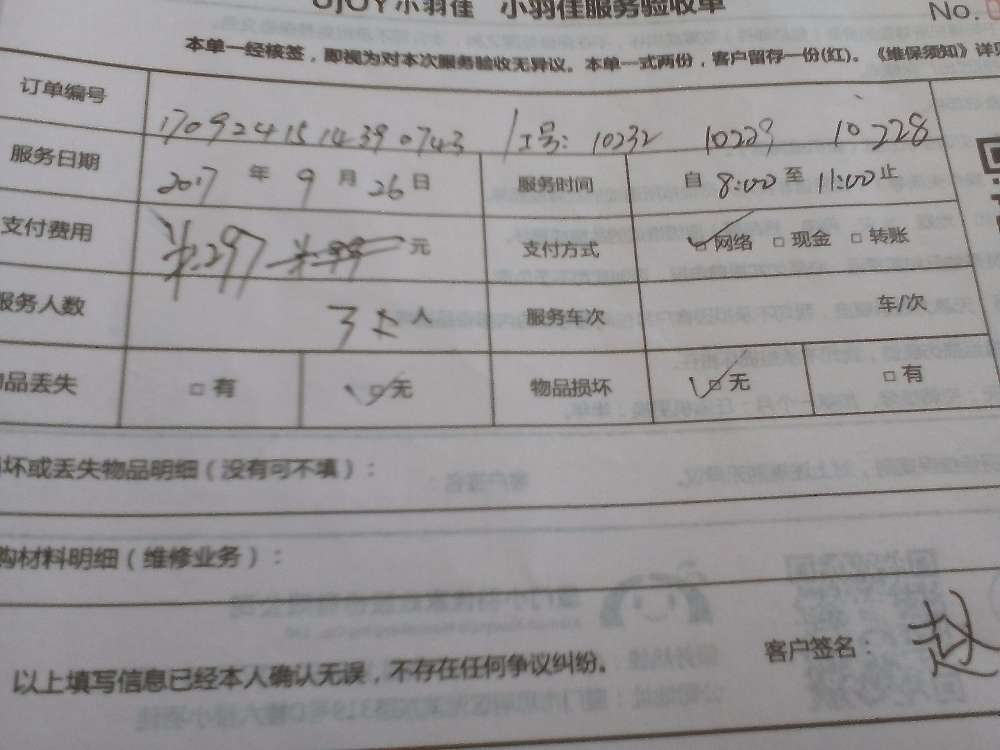 UJOY小羽佳 小羽佳服务验收单
No.
本单一经核签，即视为对本次服务验收无异议。本单一式两份，客户留存一份(红)。《维保须知》详见
订单编号 1709241514390743 工号: 10232 10229 10228
服务日期 2017 年 9 月 26 日 服务时间 自 8:00 至 11:00 止
支付费用 ¥297 ¥99 元 支付方式 网络 □ 现金 □ 转账
服务人数 3 人 服务车次 车/次
品丢失 □ 有 □ 无 物品损坏 □ 无 □ 有
坏或丢失物品明细（没有可不填）：
购材料明细（维修业务）：
以上填写信息已经本人确认无误，不存在任何争议纠纷。 客户签名： 赵